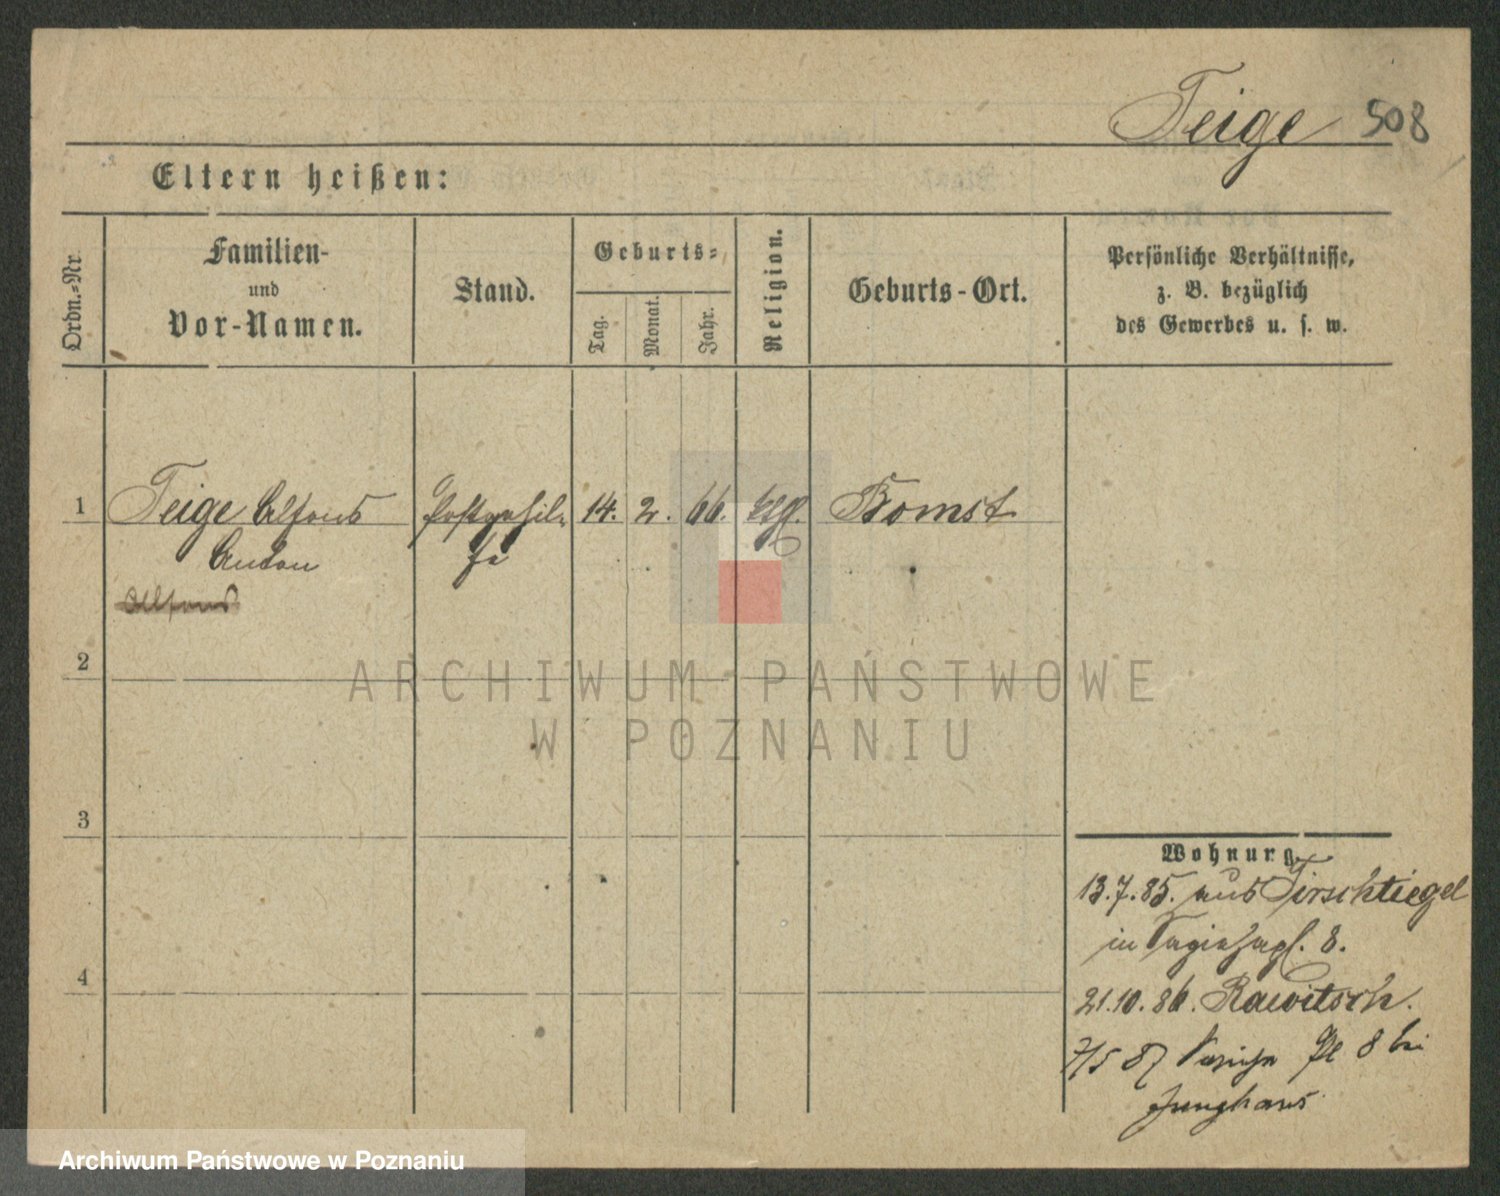 Teige 508
Eltern heißen:
Ordn.-Nr.
Familien-
und
Vor-Namen.
Stand.
Geburts-
Tag.
Monat.
Jahr.
Religion.
Geburts-Ort.
Persönliche Verhältnisse,
z. B. bezüglich
des Gewerbes u. s. w.
1 Teige Alfons 14. 2. 66. Bomst
Anton
Alfons
2
3
4
ARCHIWUM PAŃSTWOWE
W POZNANIU
Wohnung.
13.7.85. aus Tirschtiegel
in 8.
21.10.86. Rawitsch.
7/5 87 Pl 8 bei
Junghans
Archiwum Państwowe w Poznaniu